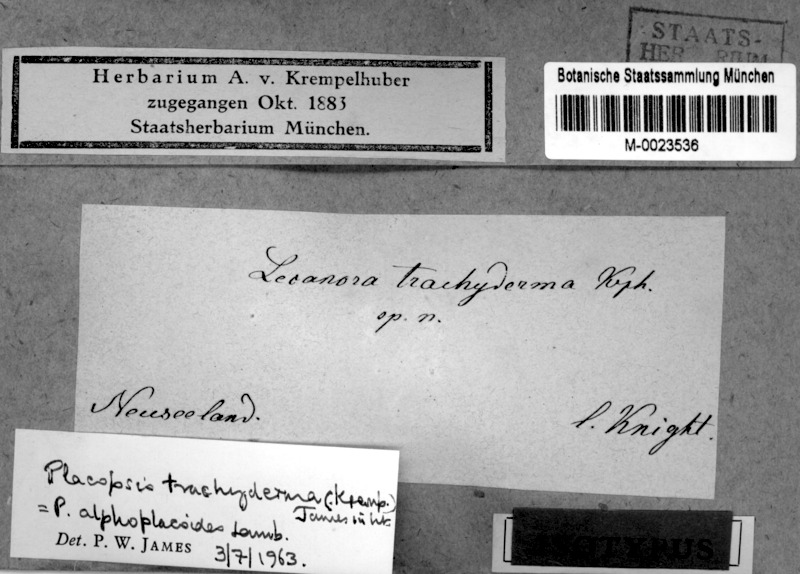 STAATS-
Herbarium A. v. Krempelhuber
zugegangen Okt. 1883
Staatsherbarium München.
Botanische Staatssammlung München
M-0023536
Lecanora trachyderma Kph.
sp. n.
Neuseeland.
l. Knight.
Placopsis trachyderma (Kremp.)
James in litt.
= P. alphoplacoides Lamb.
Det. P. W. JAMES 3/7/1963.